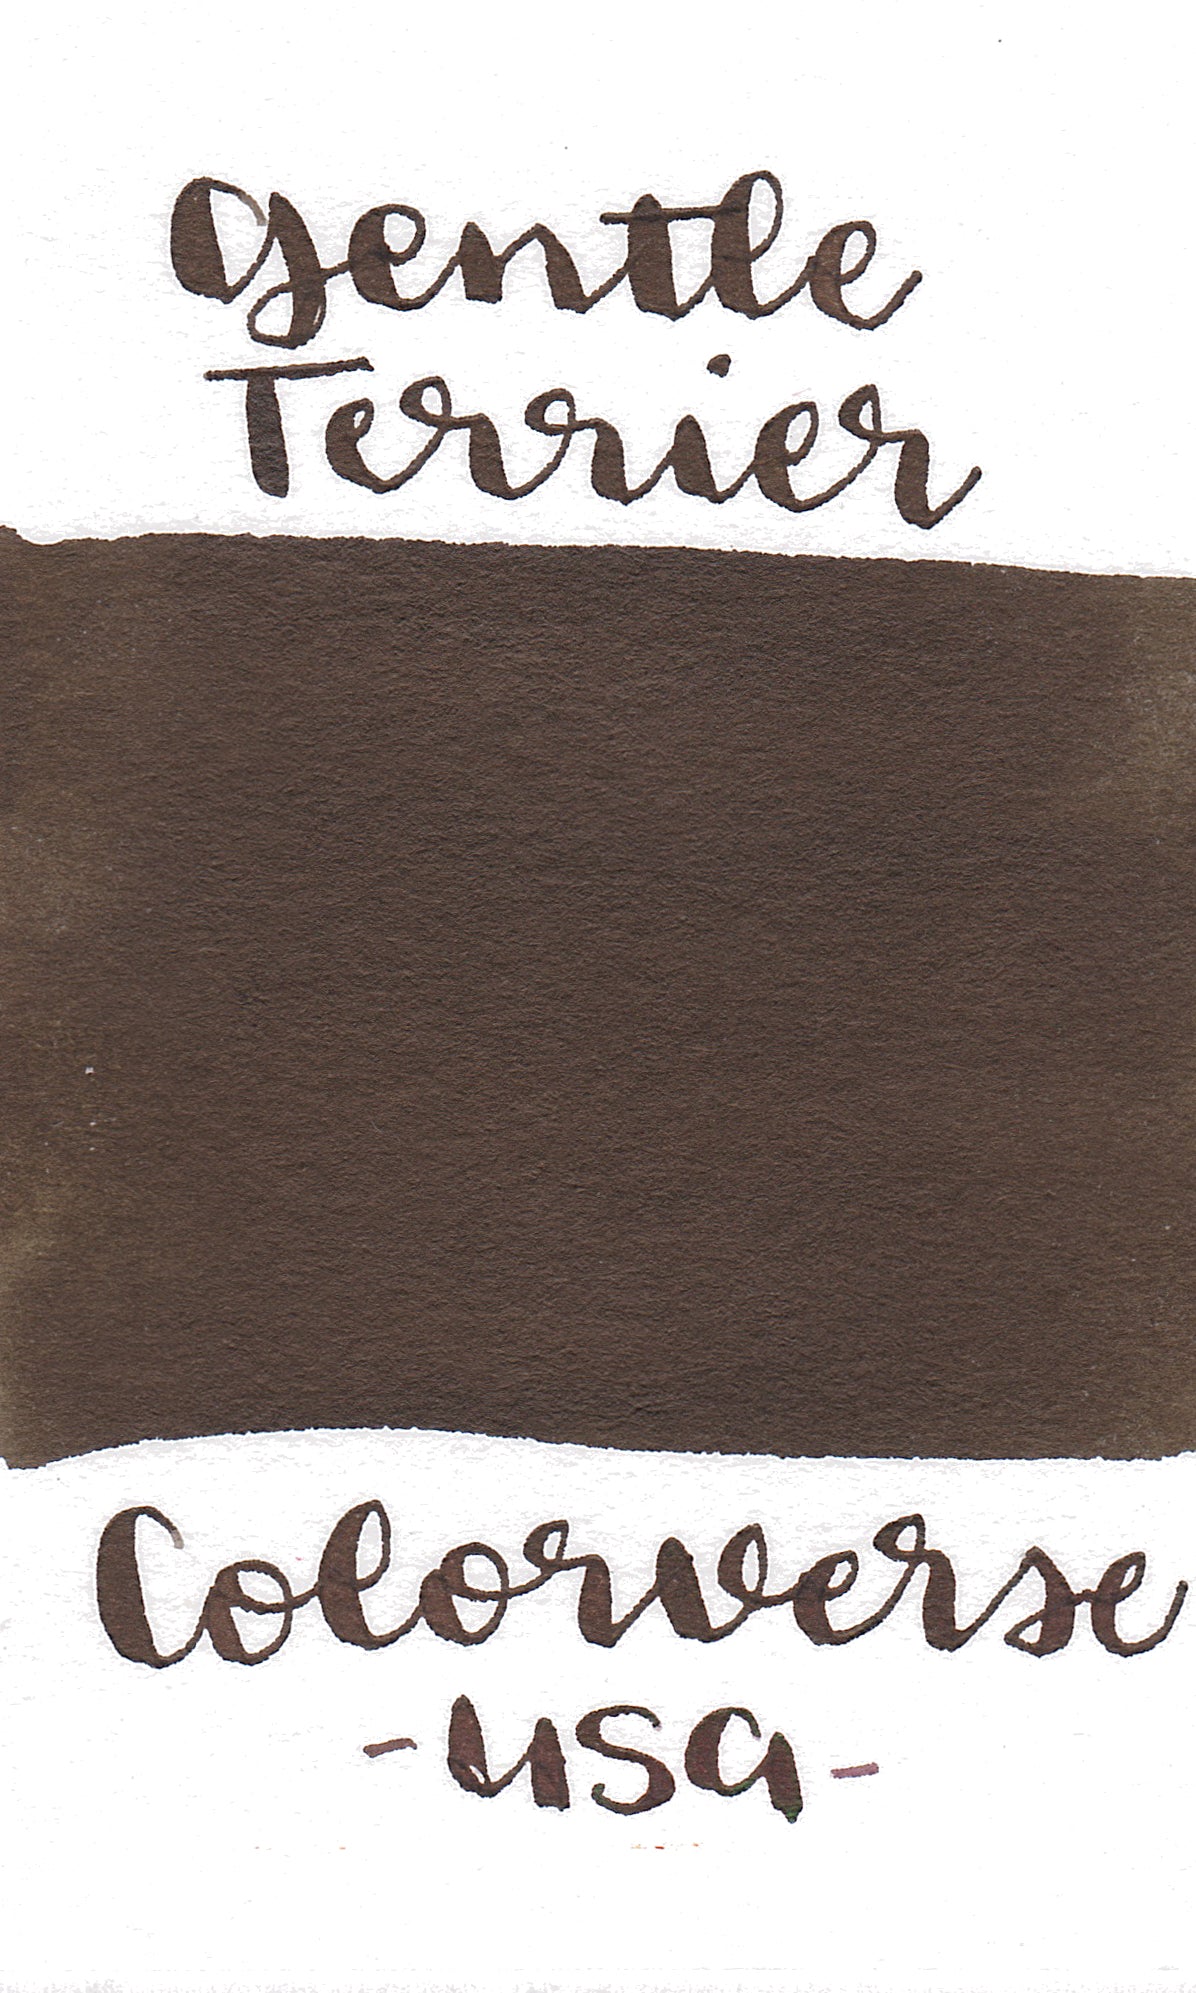 Gentle
Terrier
Colorverse
-USA-